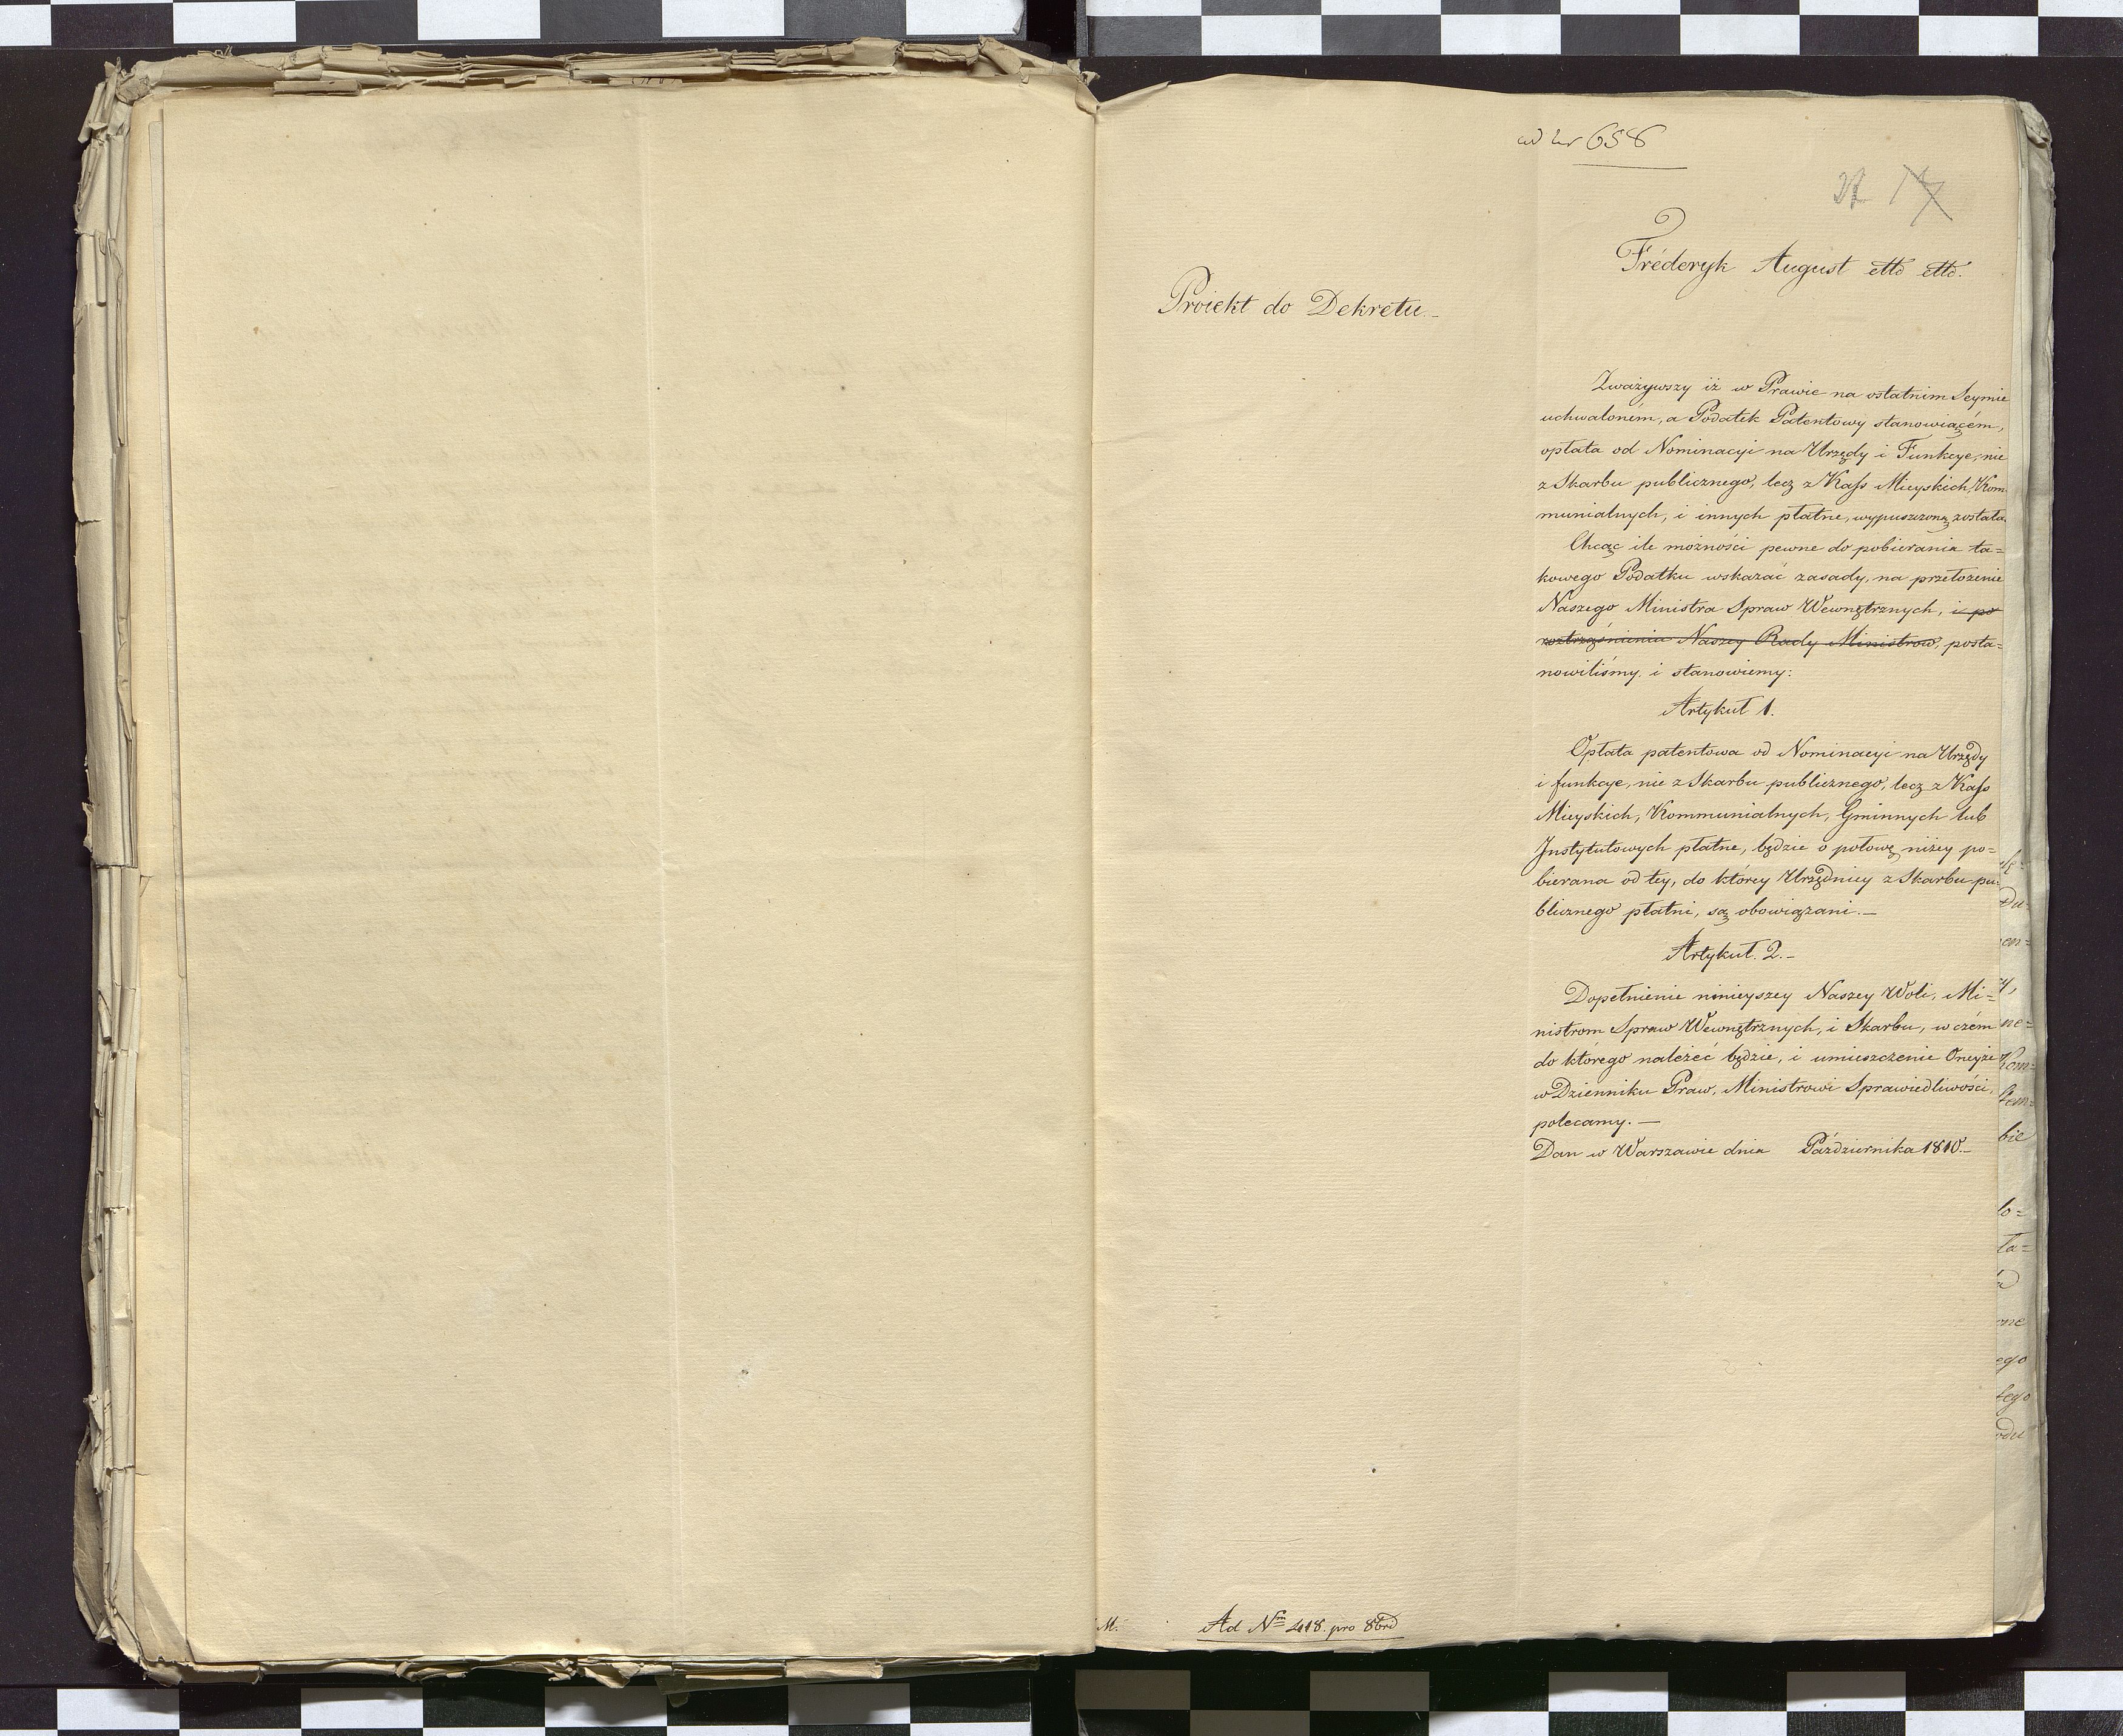 ad Nr 658
17
Fréderyk August ettc ettc.
Proiekt do Dekretu.
Zważywszy iż w Prawie na ostatnim Seymie
uchwaloném, a Podatek Patentowy stanowiącém,
opłata od Nominacyi na Urzędy i Funkcye, nie
z Skarbu publicznego, lecz z Kass Mieyskich, Kom-
munialnych, i innych płatne, wypuszczoną została.
Chcąc ile możności pewne do pobierania ta=
kowego Podatku wskazać zasady, na przełożenie
Naszego Ministra Spraw Wewnętrznych, i po
roztrząśnieniu Naszey Rady Ministrow, posta=
nowiliśmy i stanowiemy:
Artykuł 1.
Opłata patentowa od Nominacyi na Urzędy
i funkcye, nie z Skarbu publicznego, lecz z Kass
Mieyskich, Kommunialnych, Gminnych lub
Instytutowych płatne, będzie o połowę niżey po=
bierana od tey, do którey Urzędnicy z Skarbu pu=
blicznego płatni, są obowiązani.—
Artykuł. 2.—
Dopełnienie ninieyszey Naszey Woli, Mi=
nistrom Spraw Wewnętrznych, i Skarbu, w czém
do którego należeć będzie, i umieszczenie Oneyże
w Dzienniku Praw, Ministrowi Sprawiedliwości,
polecamy.—
Dan w Warszawie dnia Października 1810.—
M.
Ad Nm 418. pro 8bri